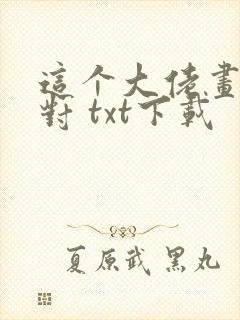 這个大佬畫
對 txt下載
夏原武 黑丸